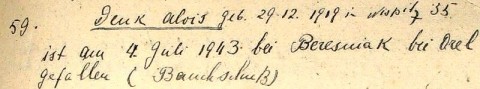 59. Denk Alois geb. 29.12.1919 in Nispitz 35
ist am 4. Juli 1943 bei Beresniak bei Orel
gefallen (Bauchschuß)